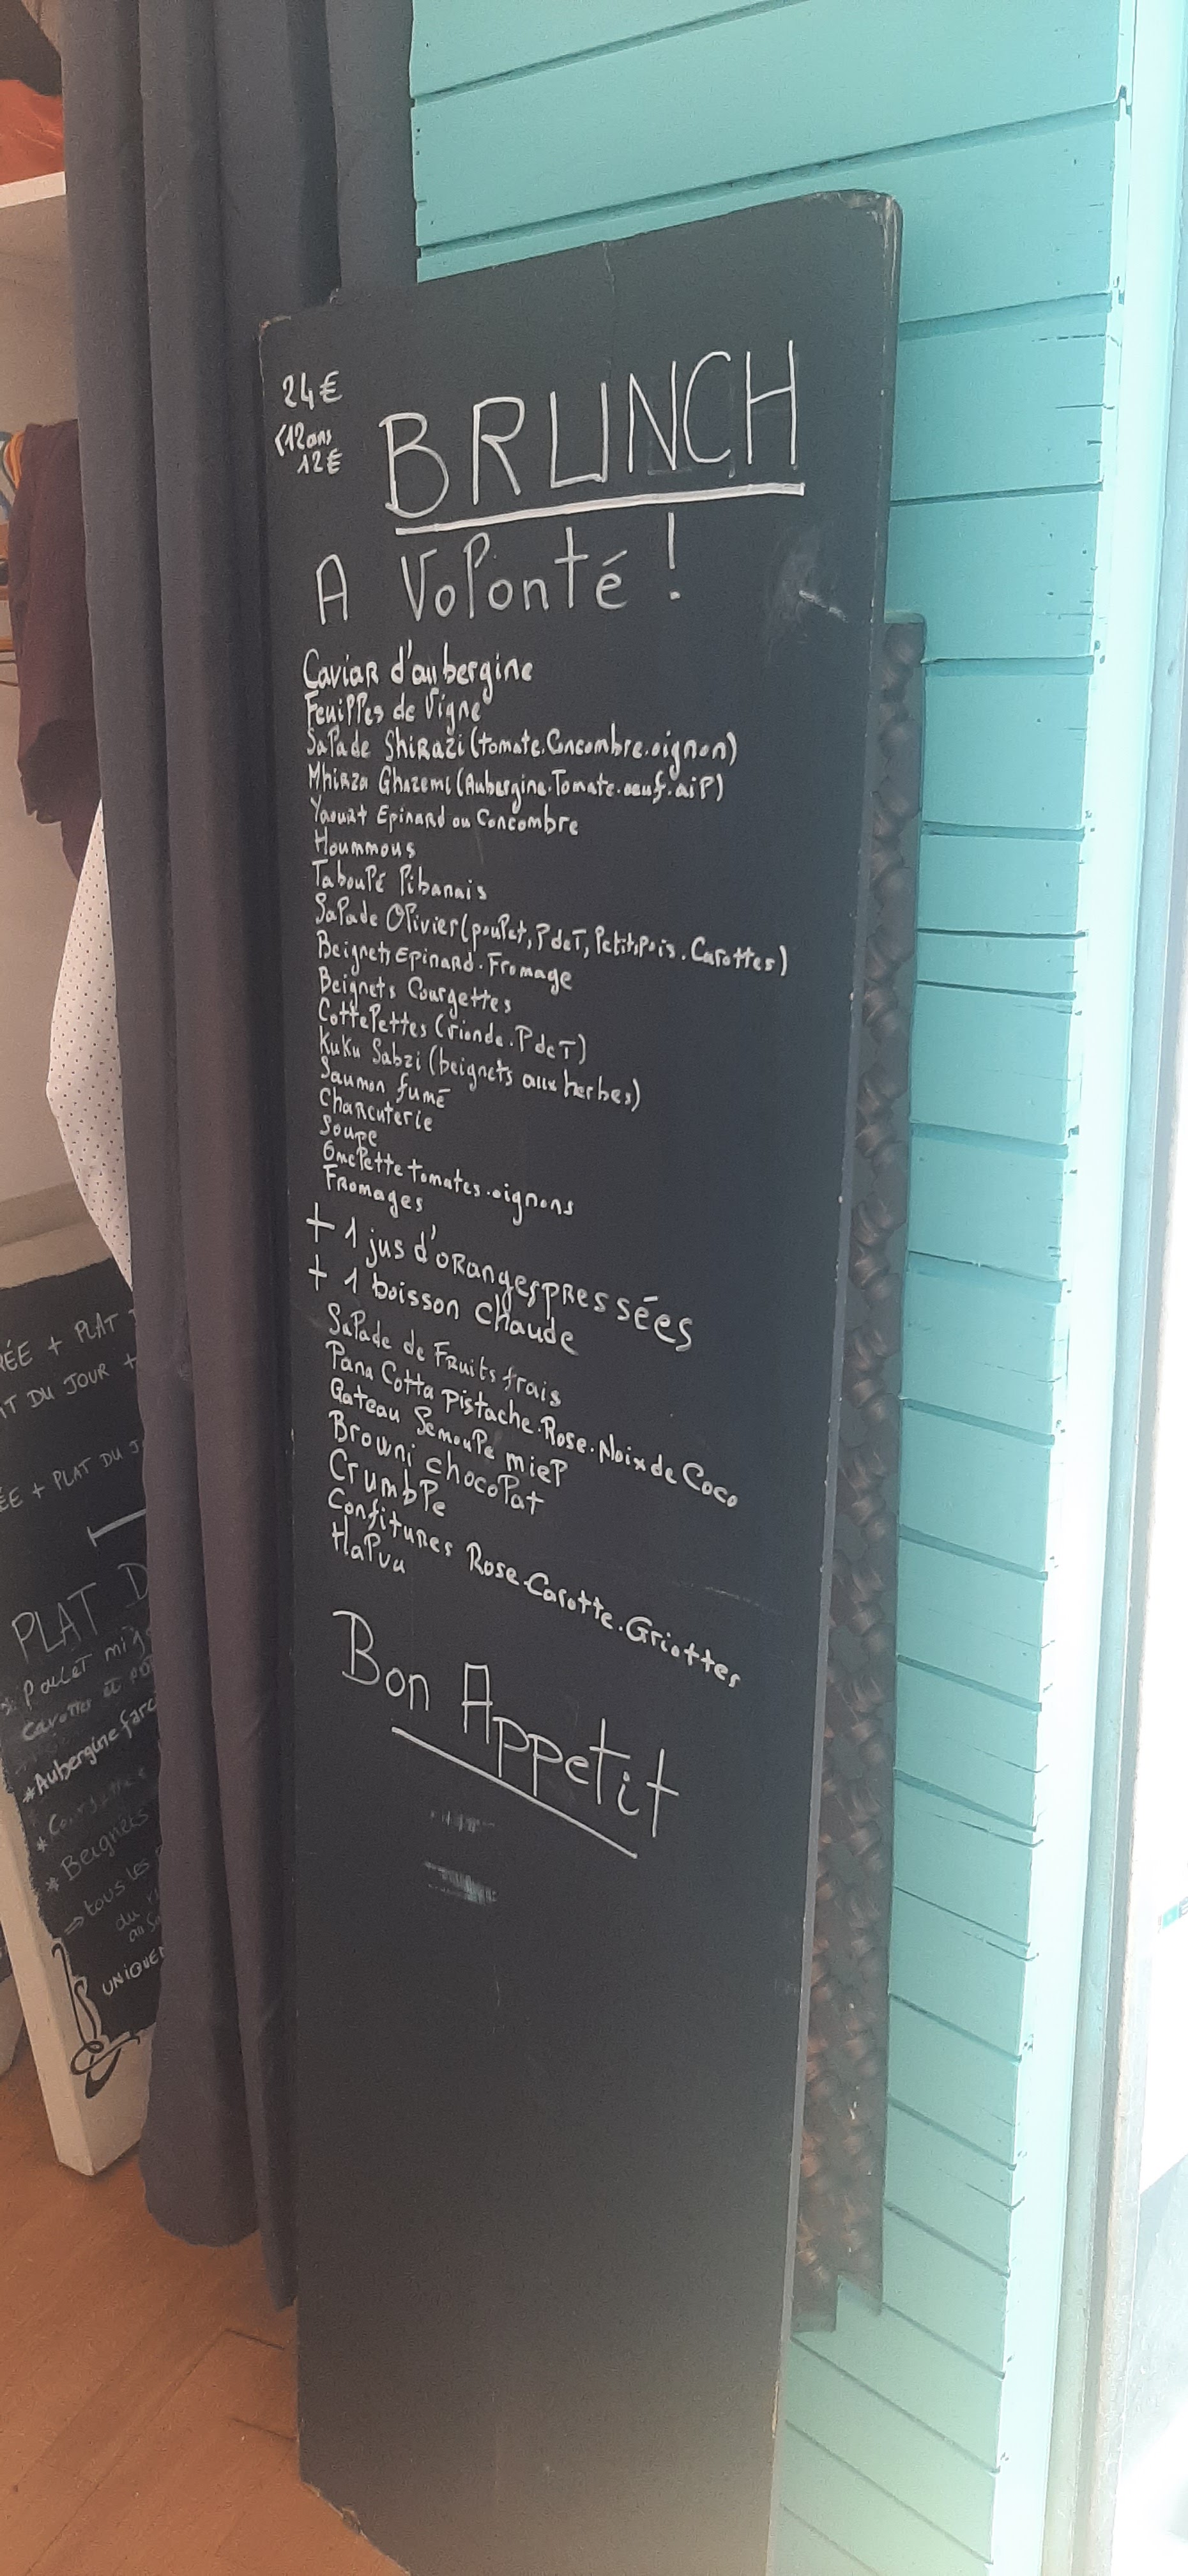 24€
<12 ans
12€
BRUNCH
A Volonté !
Caviar d'aubergine
Feuilles de Vigne
Salade Shirazi (tomate.Concombre.oignon)
Mhirza Ghazemi (Aubergine.Tomate.oeuf.ail)
Yaourt Epinard ou Concombre
Hoummous
Taboulé libanais
Salade Olivier (poulet, PdeT, Petits pois. Carottes)
Beignets Epinard. Fromage
Beignets Courgettes
Cottelettes (viande. PdeT)
Kuku Sabzi (beignets aux herbes)
Saumon fumé
Charcuterie
Soupe
Omelette tomates.oignons
Fromages
+ 1 jus d'oranges pressées
+ 1 boisson chaude
Salade de Fruits frais
Pana Cotta pistache.Rose.Noix de Coco
Gateau Semoule miel
Browni chocolat
Crumble
Confitures Rose.Carotte.Griottes
Halva
Bon Appetit
RÉE + PLAT
T DU JOUR +
ÉE + PLAT DU J
PLAT D
Poulet mij
Carottes et
*Aubergine farc
*
* Beignets
⇒ tous les
du
UNIQUE